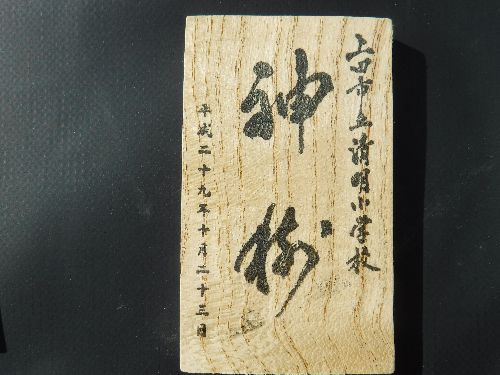 上田市立清明小学校
神樹
平成二十九年十月二十三日